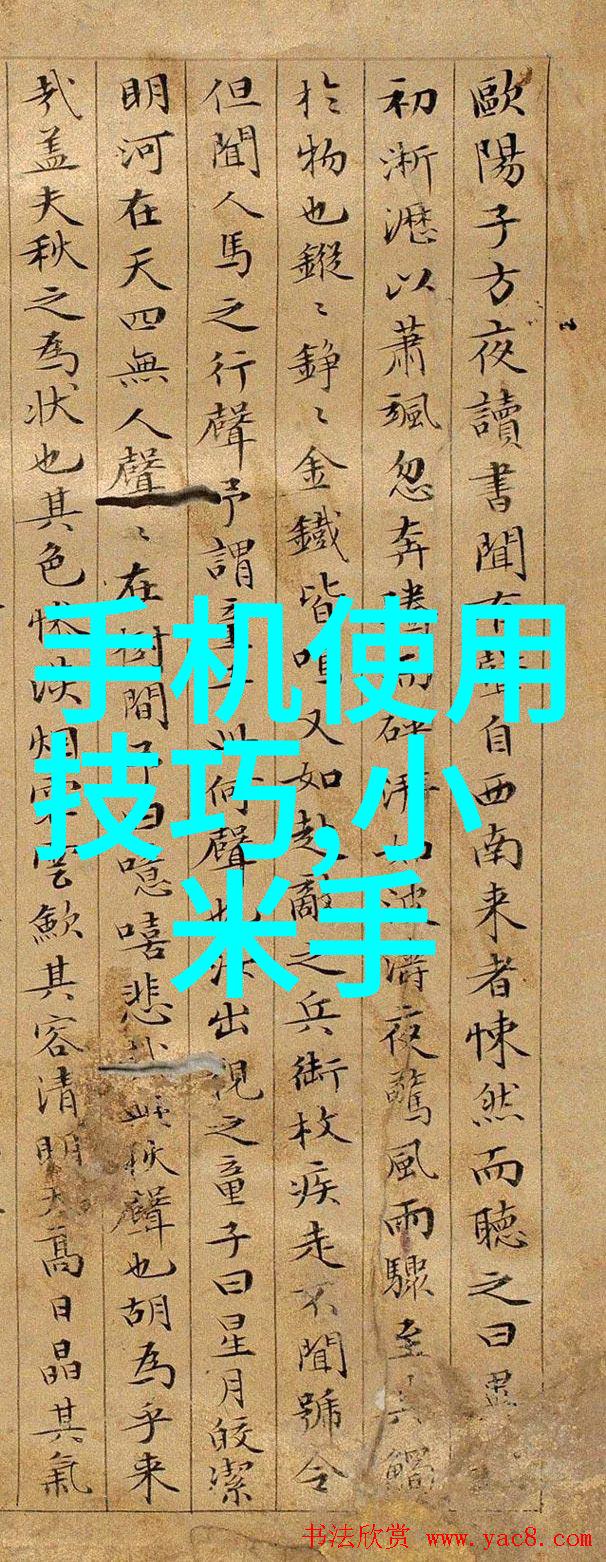 歐陽子方夜讀書聞有聲自西南来者悚然而聽之曰異
初淅瀝以蕭颯忽奔騰而砰湃如波濤夜驚風雨驟至其觸
於物也鏦〻錚〻金鐵皆鳴又如赴敵之兵銜枚疾走不聞號令
但聞人馬之行聲予謂童子此何聲也汝出視之童子曰星月皎潔
明河在天四無人聲〻在树間予曰噫嘻悲哉秋聲也胡為乎来
哉盖夫秋之為状也其色惨淡烟霏雲歛其容清明天高日晶其氣
手机使用
技巧,小
米手
书法欣赏 www.yac8.com